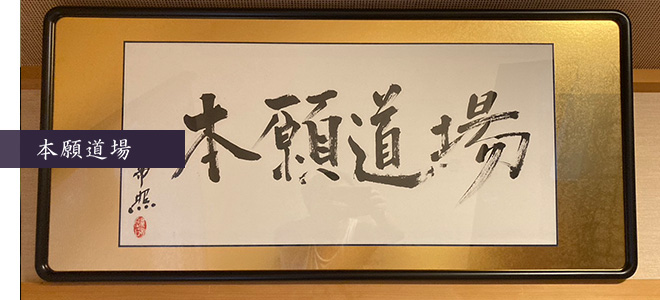 本願道場
本願道場